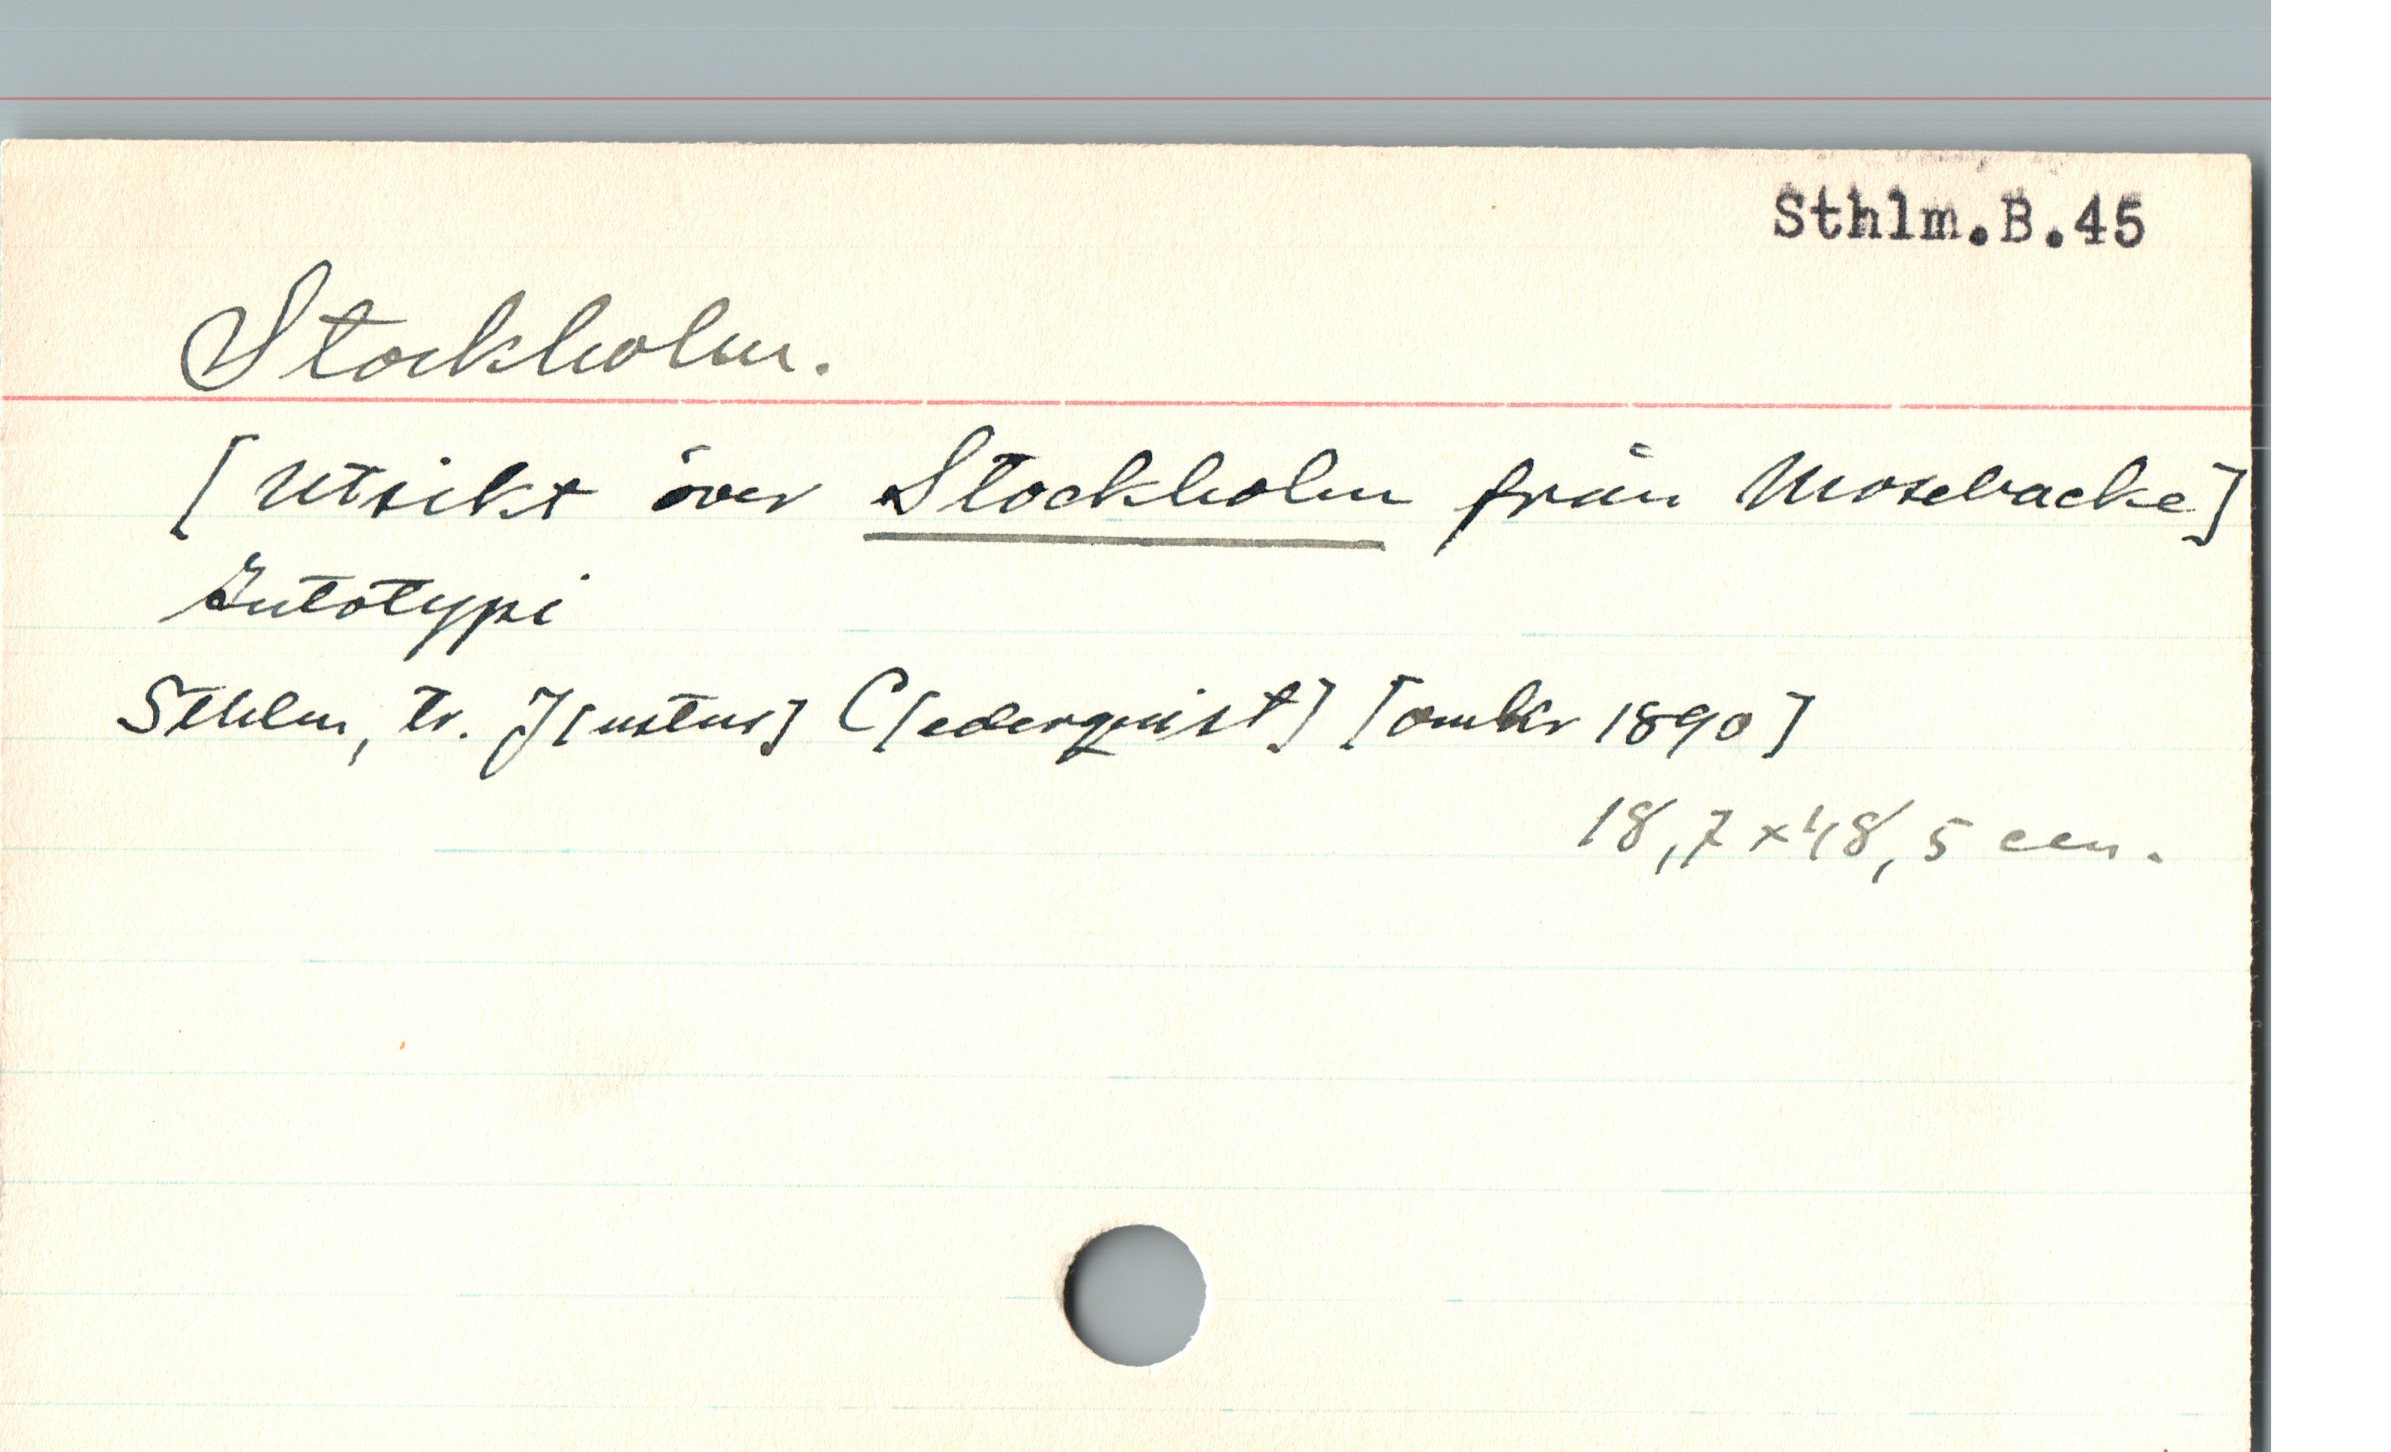 Sthlm.B.45
Stockholm.
[Utsikt över Stockholm från Mosebacke]
Autotypi
Sthlm, tr. J[ustus] C[ederquist] [omkr 1890]
18,7 x 48,5 cm.